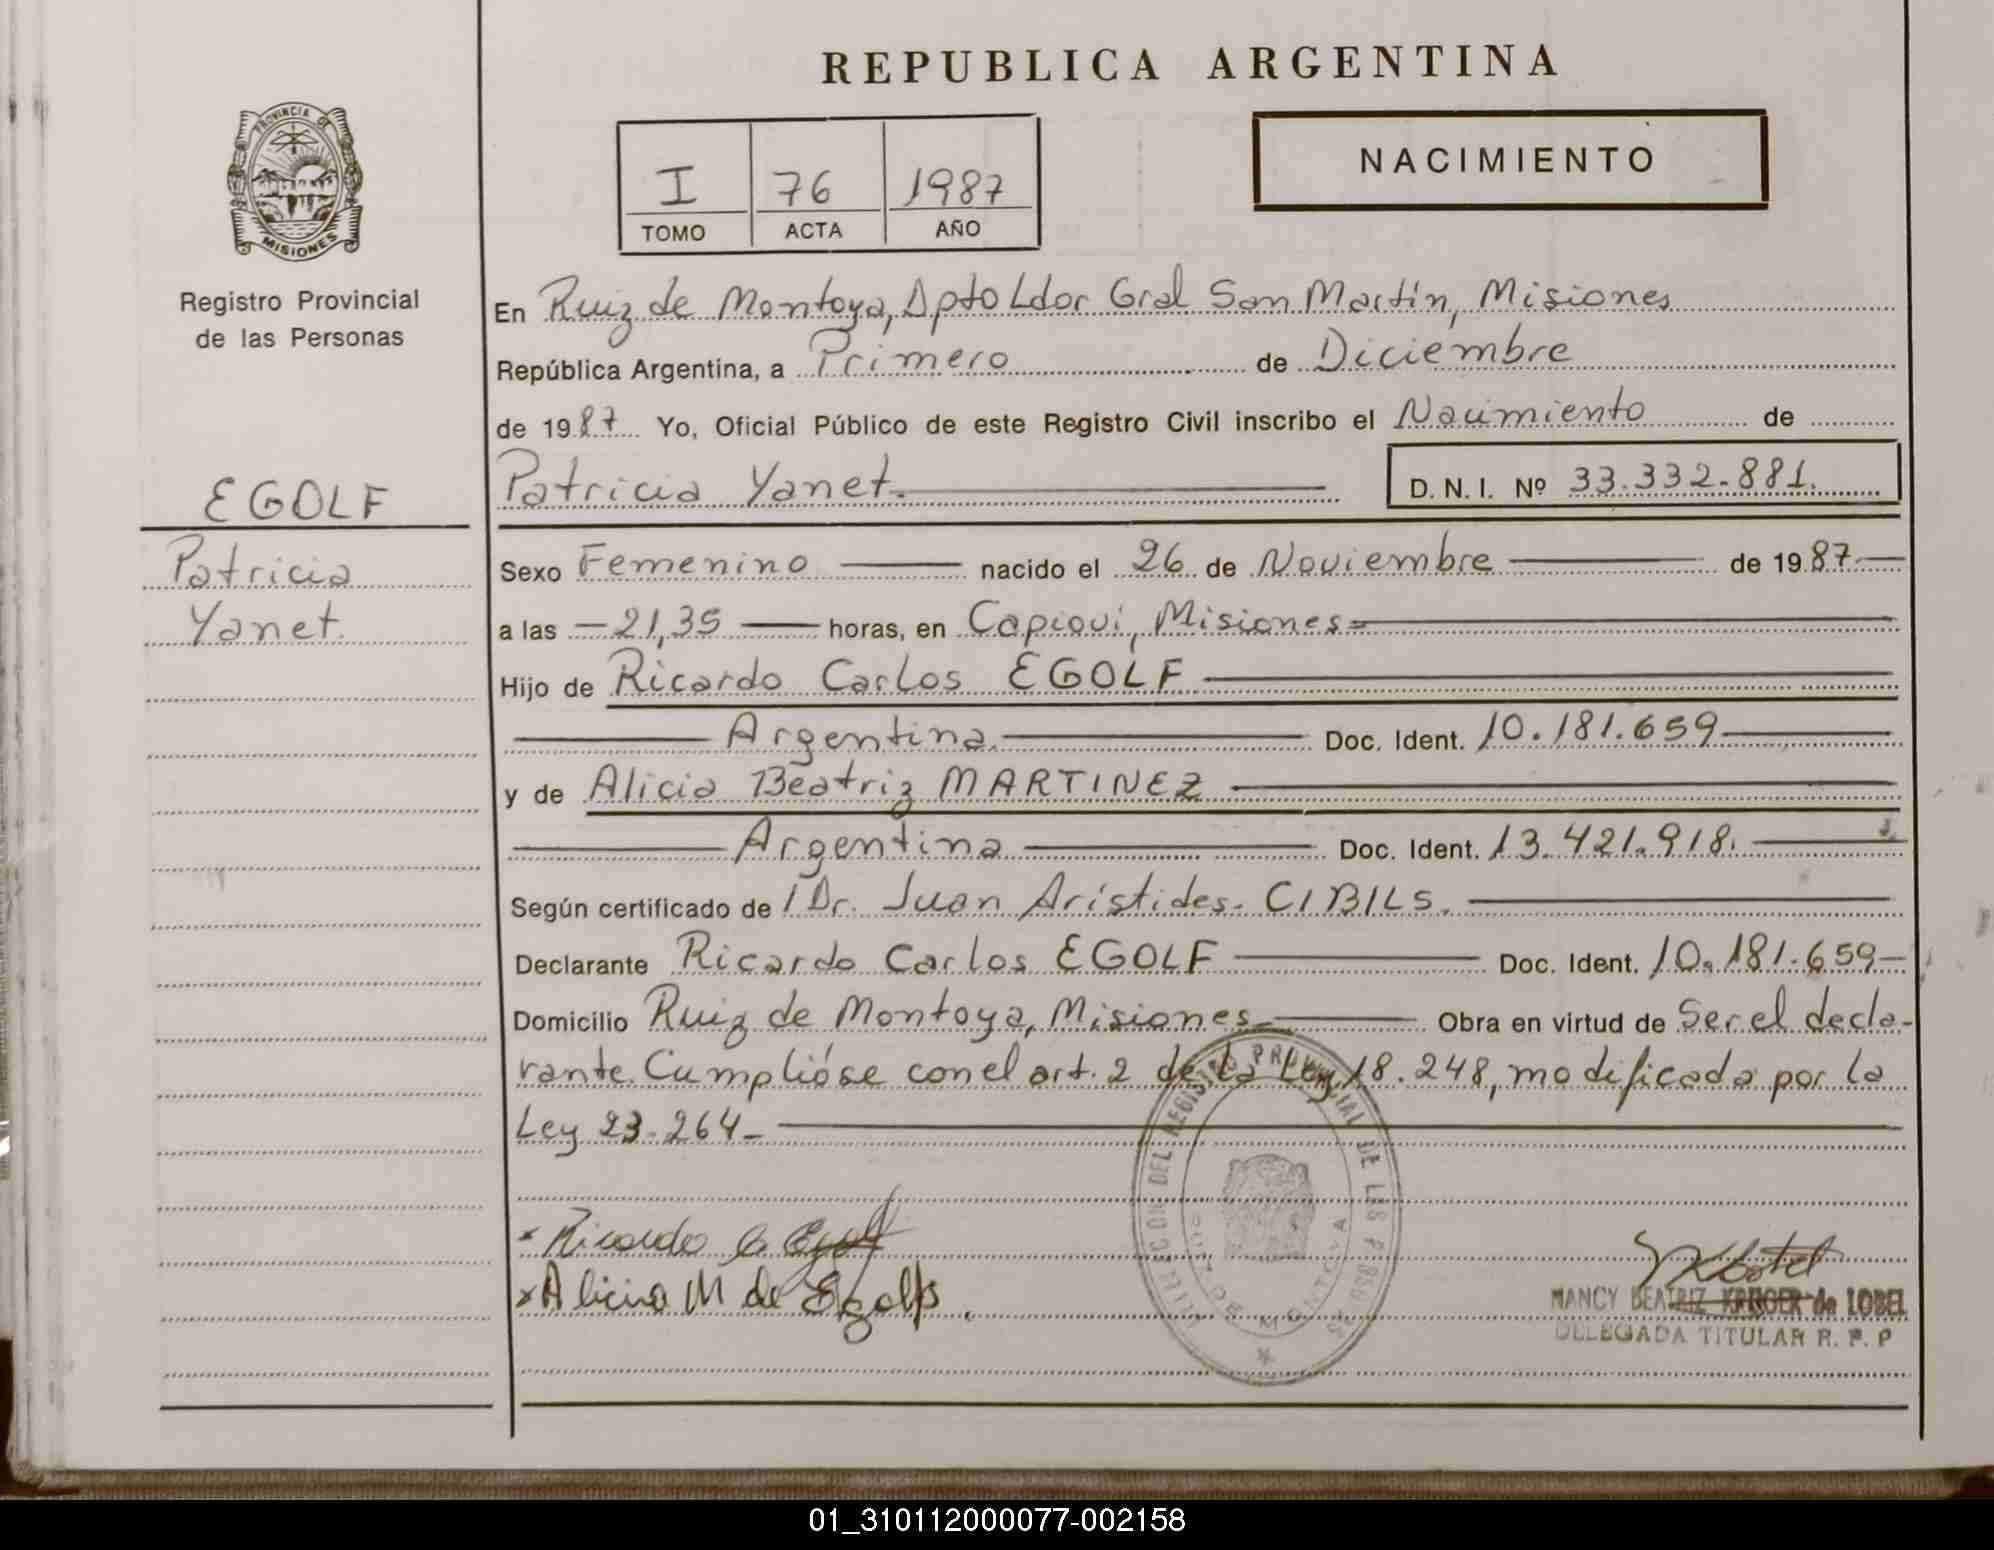 REPUBLICA ARGENTINA
PROVINCIA DE
MISIONES
Registro Provincial
de las Personas
I 76 1987
TOMO ACTA AÑO
NACIMIENTO
En Ruiz de Montoya, Dpto Ldor Gral San Martín, Misiones
República Argentina, a Primero de Diciembre
de 1987 Yo, Oficial Público de este Registro Civil inscribo el Nacimiento de
Patricia Yanet.
D. N. I. Nº 33.332.881.
EGOLF
Patricia
Yanet.
Sexo Femenino nacido el 26 de Noviembre de 1987
a las 21,35 horas, en Capioví, Misiones
Hijo de Ricardo Carlos EGOLF
Argentina. Doc. Ident. 10.181.659
y de Alicia Beatriz MARTINEZ
Argentina Doc. Ident. 13.421.918.
Según certificado de Dr. Juan Arístides. CIBILS.
Declarante Ricardo Carlos EGOLF Doc. Ident. 10.181.659
Domicilio Ruiz de Montoya, Misiones Obra en virtud de Ser el decla-
rante. Cumplióse con el art. 2 de la Ley 18.248, modificada por la
Ley 23.264
DEL REGISTRO PROVINCIAL DE LAS PERSONAS
RUIZ DE MONTOYA
Ricardo C Egolf
Alicia M de Egolf.
NANCY BEATRIZ KRUGER de LOBEL
DELEGADA TITULAR R. P. P
01_310112000077-002158